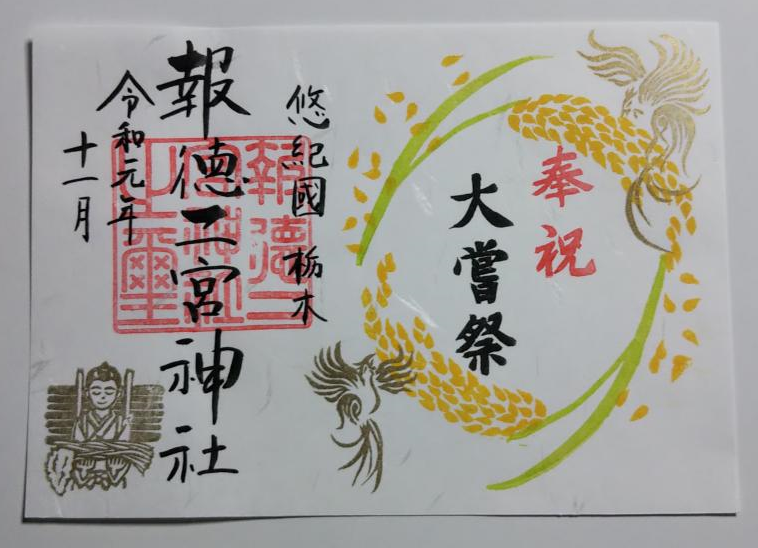 奉祝
大嘗祭
悠紀國 栃木
報徳二宮神社
令和元年
十一月
報徳二
宮神社
之璽